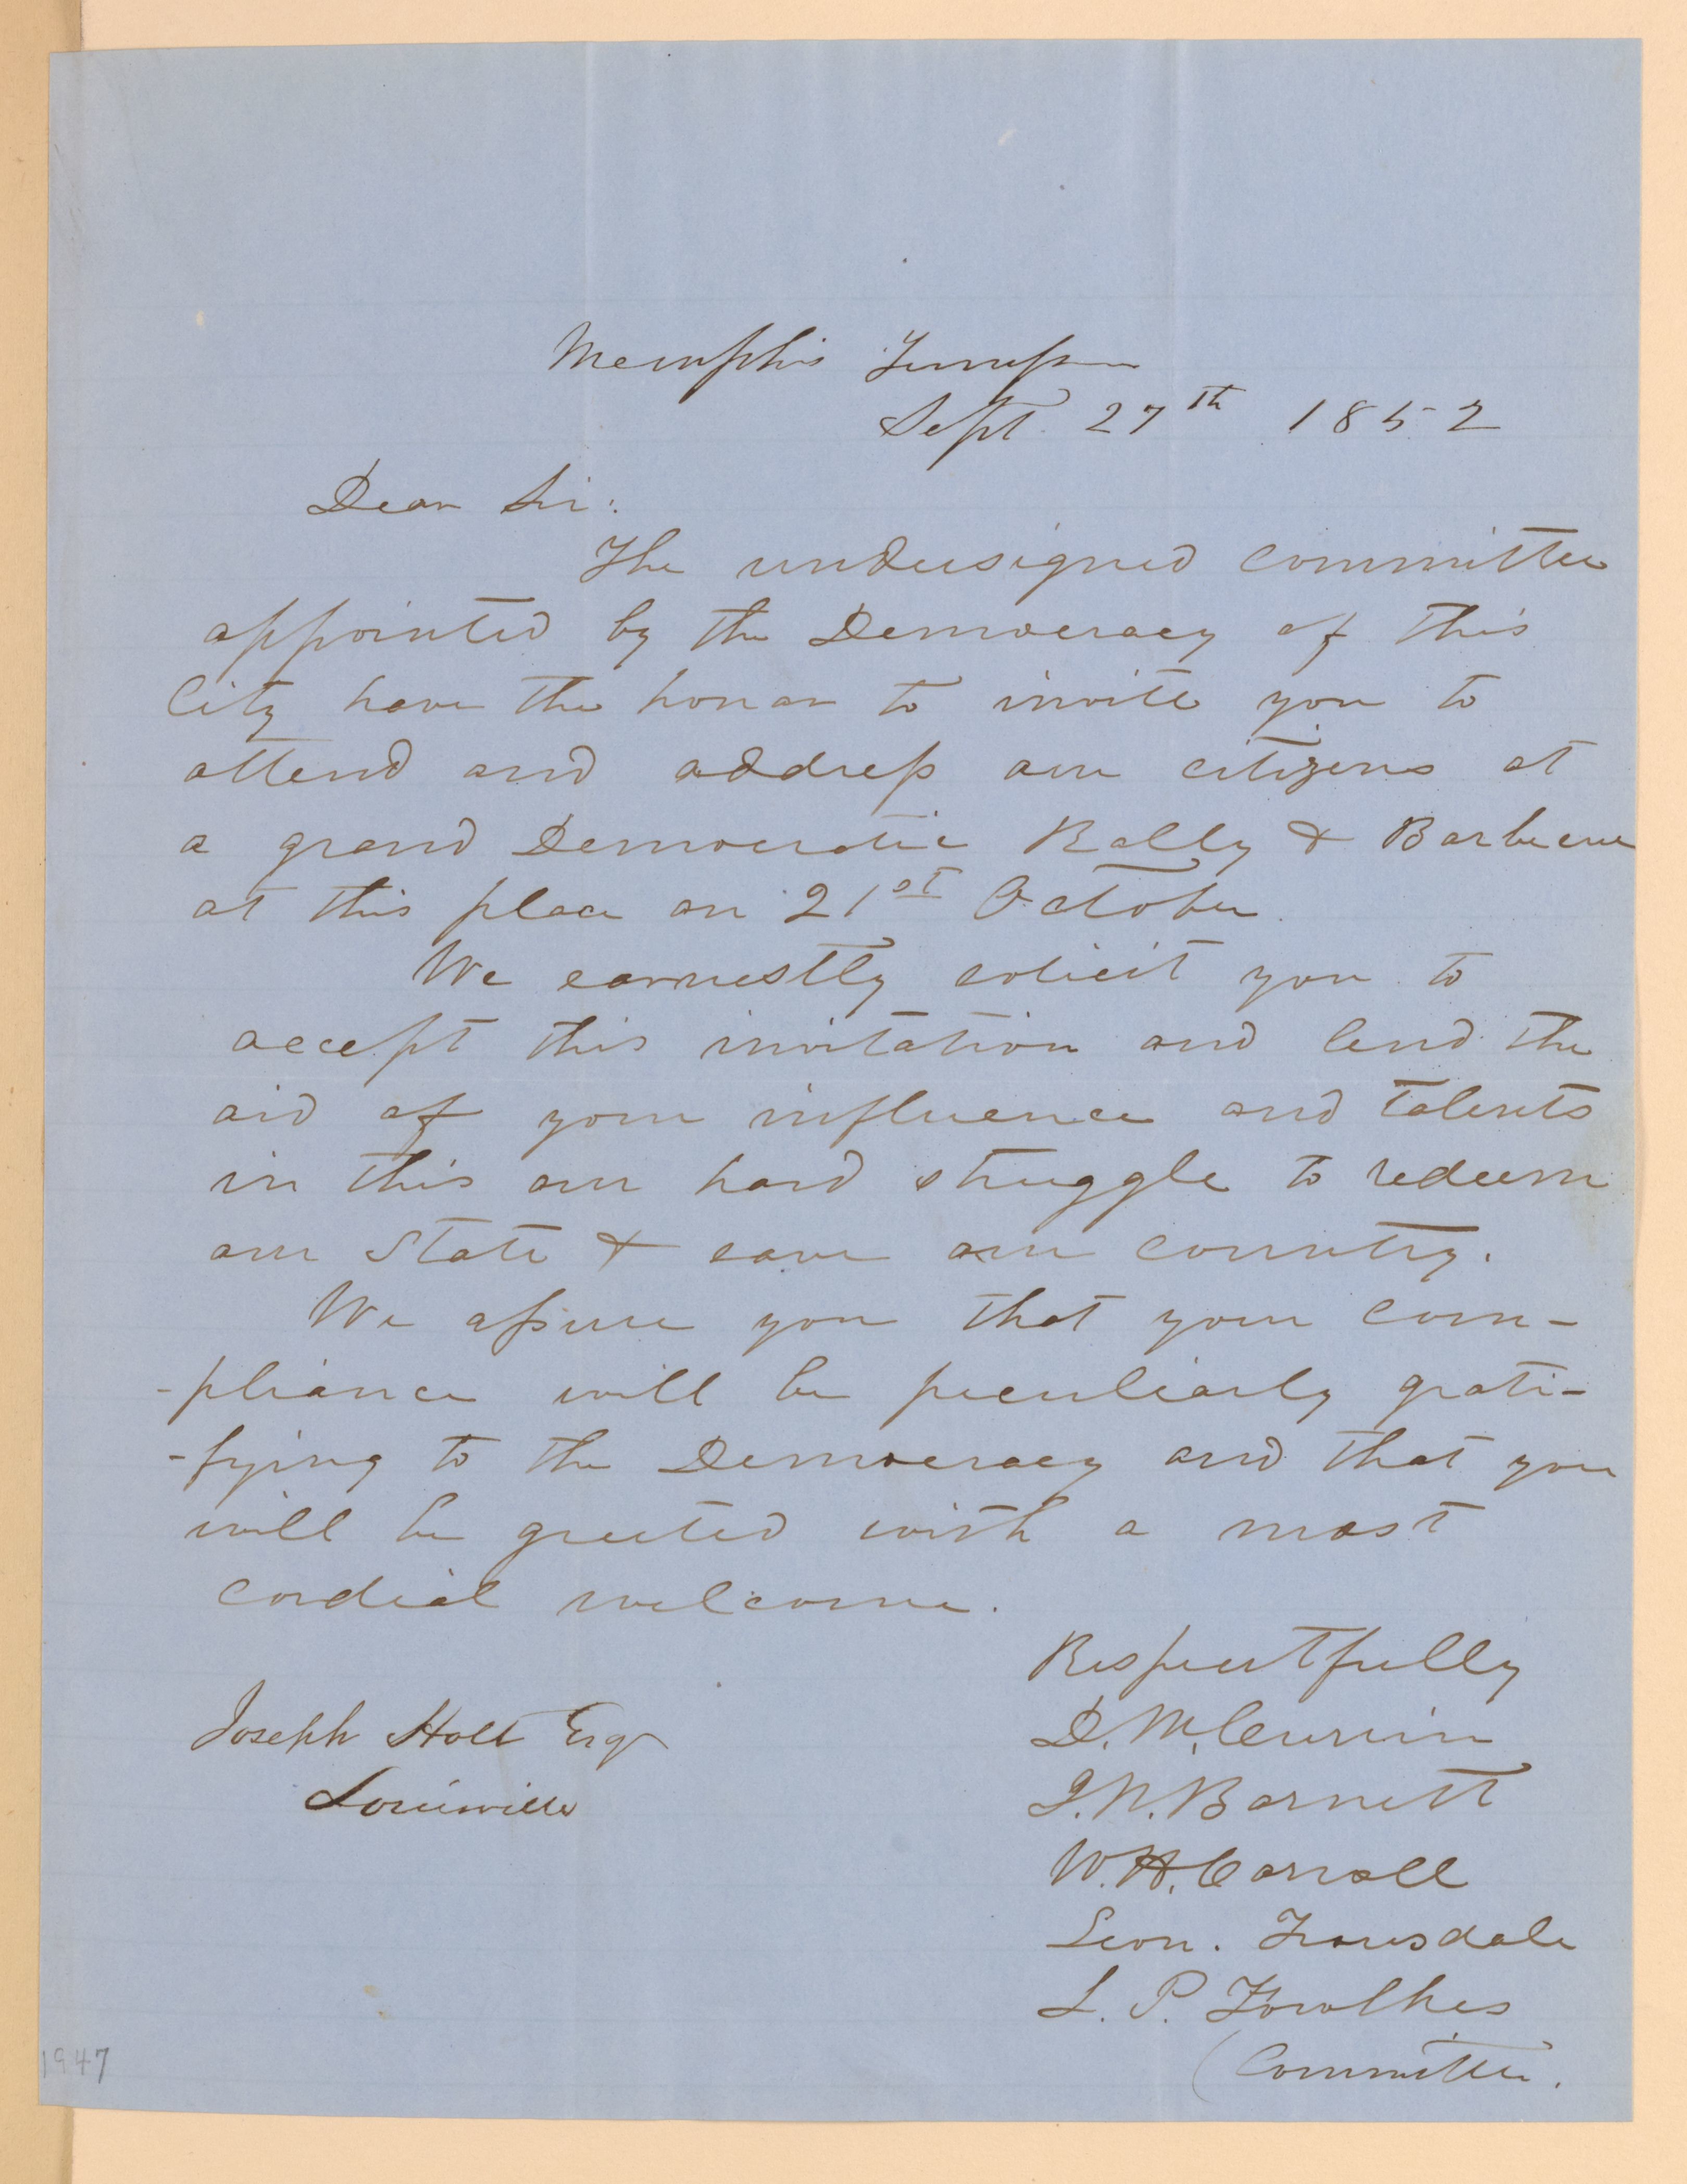 Memphis Tennessee
Sept. 27th 1852
Dear Sir:
The undersigned committee
appointed by the Democracy of this
City have the honor to invite you to
attend and address our citizens at
a grand Democratic Rally & Barbecue
at this place on 21st October.
We earnestly solicit you to
accept this invitation and lend the
aid of your influence and talents
in this our hard struggle to redeem
our State & save our country.
We assure you that your com-
-pliance will be peculiarly grati-
-fying to the Democracy and that you
will be greeted with a most
cordial welcome.
Respectfully
D. M. Currin
J. N. Barnett
W. H. Carroll
Leon. Trousdale
L. P. Fowlkes
(Committee.
Joseph Holt Esq
Louisville
1947